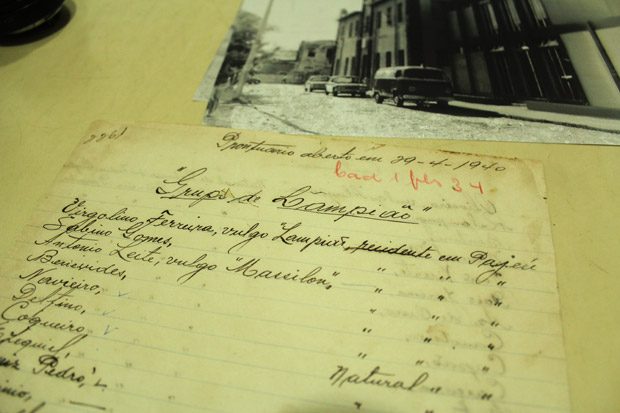 2261
Prontuario aberto em 29-4-1940
Cad 1 fls 34
"Grupo de Lampião"
Virgolino Ferreira, vulgo "Lampião, residente em Pageú
Sabino Gomes, " " "
Antonio Leite, vulgo "Massilon", " " "
Benevides, " " "
Novieiro, " " "
Delfino, " " "
Coqueiro, " " "
Ezequiel, " " "
Luiz Pedro, Natural " "